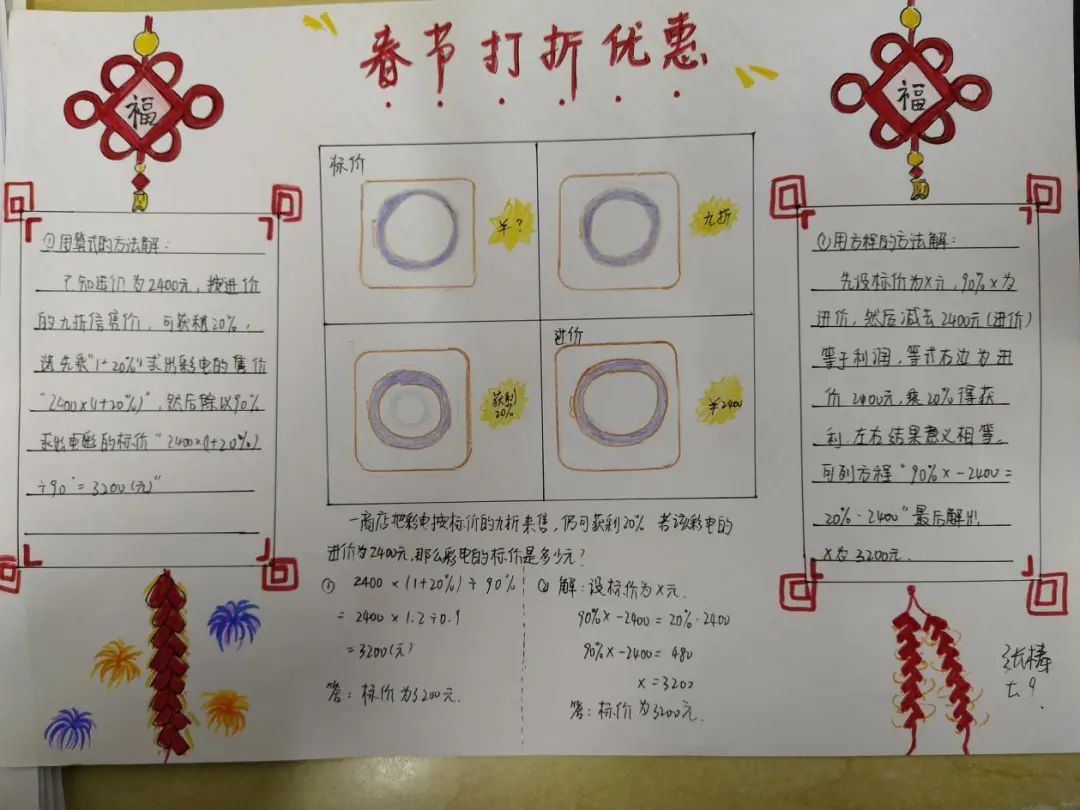 春节打折优惠
福
福
标价
¥?
九折
获利
20%
进价
¥2400
①用算式的方法解:
已知进价为2400元,按进价
的九折信售价,可获利20%,
先乘"1+20%"求出彩电的售价
"2400×(1+20%)",然后除以90%
求出电彩的标价"2400×(1+20%)
÷90 = 3200(元)"
一商店把彩电按标价的九折来售,仍可获利20% 若该彩电的
进价为2400元,那么彩电的标价是多少元?
① 2400 × (1+20%) ÷ 90%
= 2400 × 1.2 ÷ 0.9
= 3200(元)
答:标价为3200元.
② 解:设标价为x元.
90%x -2400 = 20%·2400
90%x -2400 = 480
x = 3200
答:标价为3200元.
②用方程的方法解:
先设标价为x元,90%x为
进价,然后减去2400元(进价)
等于利润,等式右边为进
价2400元,乘20%得获
利.左右结果意义相等.
可列方程"90%x -2400 =
20%·2400"最后解出
x为3200元.
七9